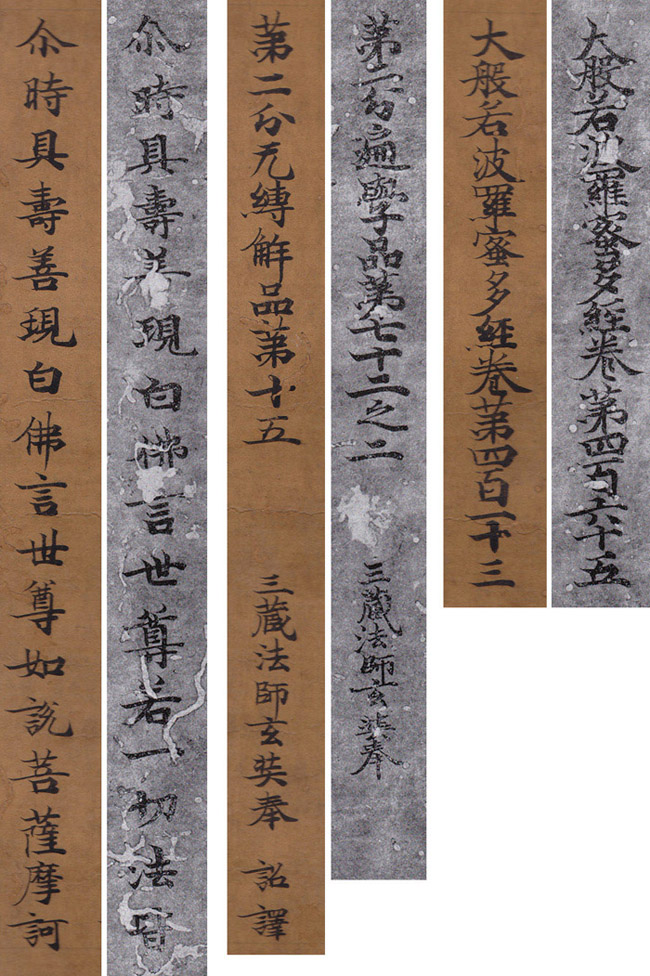 大般若波羅蜜多經卷第四百六十五
大般若波羅蜜多經卷第四百一十三
第二分遍學品第七十二之二 三藏法師玄奘奉
第二分无縛解品第十五 三藏法師玄奘奉 詔譯
尒時具壽善現白佛言世尊若一切法皆
尒時具壽善現白佛言世尊如說菩薩摩訶